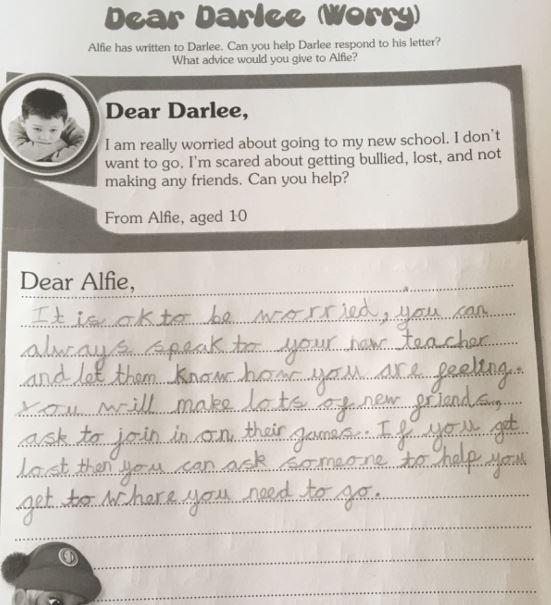 Dear Darlee (Worry)
Alfie has written to Darlee. Can you help Darlee respond to his letter?
What advice would you give to Alfie?
Dear Darlee,
I am really worried about going to my new school. I don't
want to go. I'm scared about getting bullied, lost, and not
making any friends. Can you help?
From Alfie, aged 10
Dear Alfie,
It is ok to be worried, you can
always speak to your new teacher
and let them know how you are feeling.
You will make lots of new friends,
ask to join in on their games. If you get
lost then you can ask someone to help you
get to where you need to go.